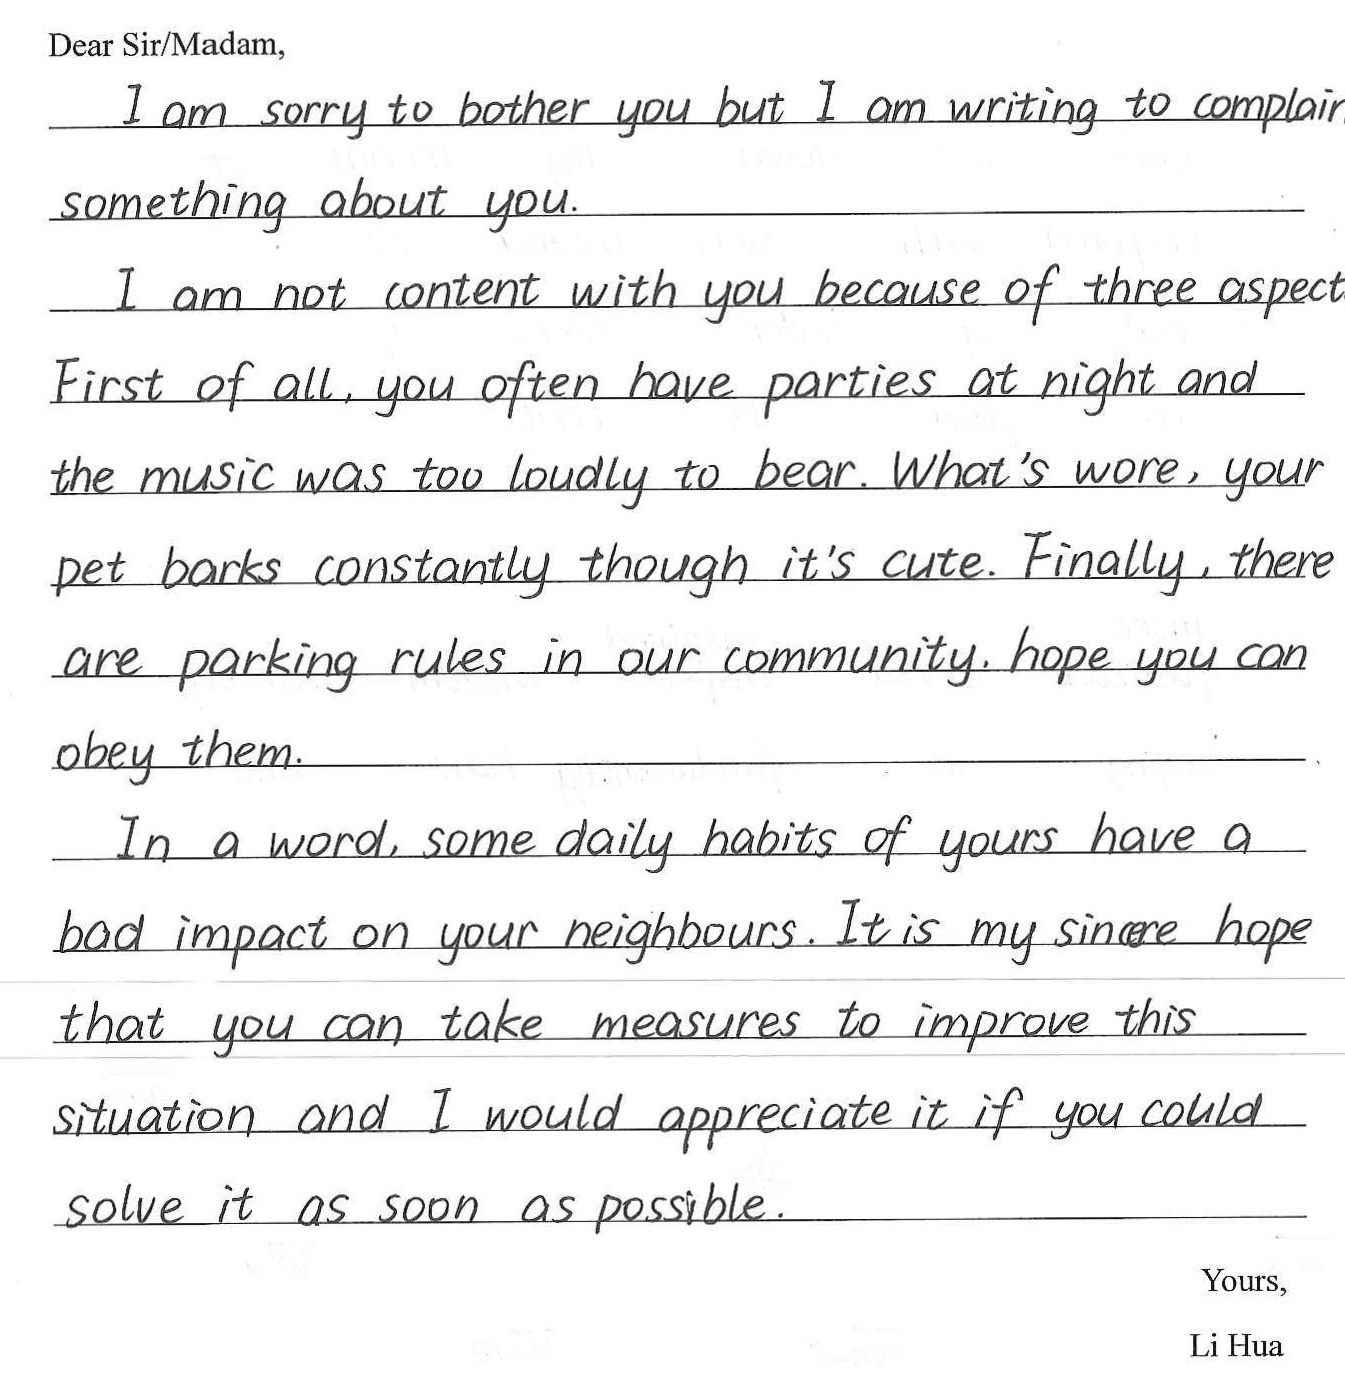 Dear Sir/Madam,
I am sorry to bother you but I am writing to complain
something about you.
I am not content with you because of three aspect
First of all, you often have parties at night and
the music was too loudly to bear. What's wore, your
pet barks constantly though it's cute. Finally, there
are parking rules in our community. hope you can
obey them.
In a word, some daily habits of yours have a
bad impact on your neighbours. It is my sincere hope
that you can take measures to improve this
situation and I would appreciate it if you could
solve it as soon as possible.
Yours,
Li Hua